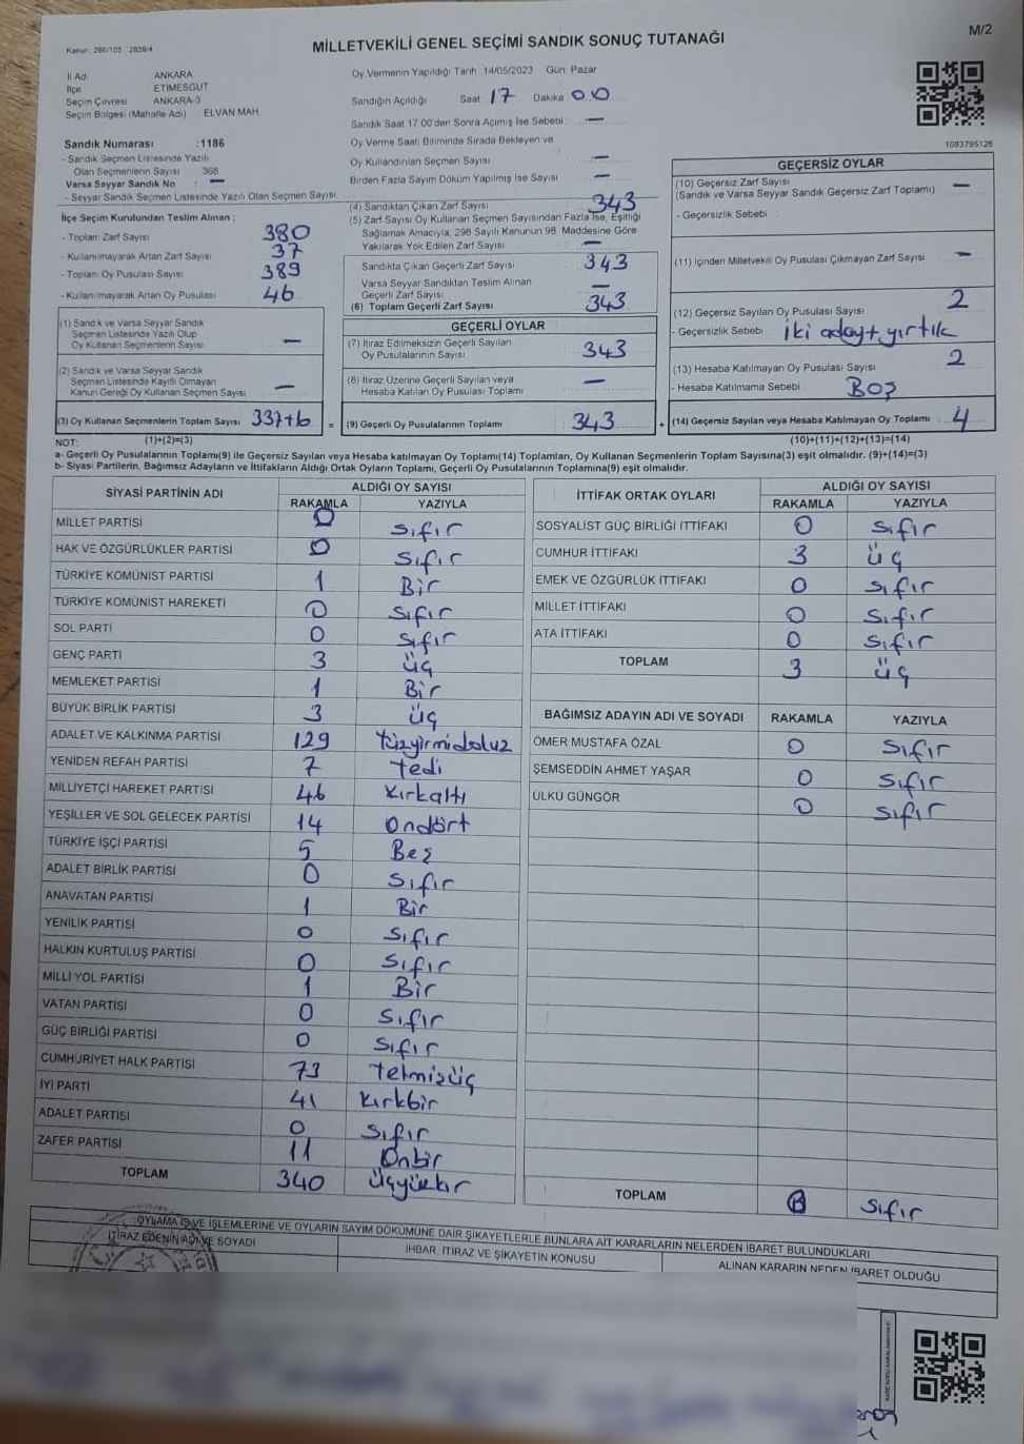 Kanun: 298/105 : 2839/4
MİLLETVEKİLİ GENEL SEÇİMİ SANDIK SONUÇ TUTANAĞI
M/2
İl Adı ANKARA
İlçe ETİMESGUT
Seçim Çevresi ANKARA-3
Seçim Bölgesi (Mahalle Adı) ELVAN MAH.
Oy Vermenin Yapıldığı Tarih :14/05/2023 Gün: Pazar
Sandığın Açıldığı Saat 17 Dakika 00
Sandık Saat 17.00'den Sonra Açılmış İse Sebebi : —
Oy Verme Saati Bitiminde Sırada Bekleyen ve
Oy Kullandırılan Seçmen Sayısı —
Birden Fazla Sayım Döküm Yapılmış İse Sayısı —
1083795126
Sandık Numarası :1186
- Sandık Seçmen Listesinde Yazılı
Olan Seçmenlerin Sayısı 368
Varsa Seyyar Sandık No : —
- Seyyar Sandık Seçmen Listesinde Yazılı Olan Seçmen Sayısı
İlçe Seçim Kurulundan Teslim Alınan ;
- Toplam Zarf Sayısı 380
- Kullanılmayarak Artan Zarf Sayısı 37
- Toplam Oy Pusulası Sayısı 389
- Kullanılmayarak Artan Oy Pusulası 46
(1) Sandık ve Varsa Seyyar Sandık
Seçmen Listesinde Yazılı Olup
Oy Kullanan Seçmenlerin Sayısı —
(2) Sandık ve Varsa Seyyar Sandık
Seçmen Listesinde Kayıtlı Olmayan
Kanun Gereği Oy Kullanan Seçmen Sayısı —
(3) Oy Kullanan Seçmenlerin Toplam Sayısı 337+6 =
(4) Sandıktan Çıkan Zarf Sayısı 343
(5) Zarf Sayısı Oy Kullanan Seçmen Sayısından Fazla İse, Eşitliği
Sağlamak Amacıyla, 298 Sayılı Kanunun 98. Maddesine Göre
Yakılarak Yok Edilen Zarf Sayısı —
Sandıkta Çıkan Geçerli Zarf Sayısı 343
Varsa Seyyar Sandıktan Teslim Alınan
Geçerli Zarf Sayısı —
(6) Toplam Geçerli Zarf Sayısı 343
GEÇERLİ OYLAR
(7) İtiraz Edilmeksizin Geçerli Sayılan
Oy Pusulalarının Sayısı 343
(8) İtiraz Üzerine Geçerli Sayılan veya
Hesaba Katılan Oy Pusulası Toplamı —
(9) Geçerli Oy Pusulalarının Toplamı 343 +
GEÇERSİZ OYLAR
(10) Geçersiz Zarf Sayısı
(Sandık ve Varsa Seyyar Sandık Geçersiz Zarf Toplamı) —
- Geçersizlik Sebebi :
(11) İçinden Milletvekili Oy Pusulası Çıkmayan Zarf Sayısı —
(12) Geçersiz Sayılan Oy Pusulası Sayısı 2
- Geçersizlik Sebebi : iki aday+yırtık
(13) Hesaba Katılmayan Oy Pusulası Sayısı 2
- Hesaba Katılmama Sebebi : Boş
(14) Geçersiz Sayılan veya Hesaba Katılmayan Oy Toplamı 4
NOT: (1)+(2)=(3)
(10)+(11)+(12)+(13)=(14)
a- Geçerli Oy Pusulalarının Toplamı(9) ile Geçersiz Sayılan veya Hesaba katılmayan Oy Toplamı(14) Toplamları, Oy Kullanan Seçmenlerin Toplam Sayısına(3) eşit olmalıdır. (9)+(14)=(3)
b- Siyasi Partilerin, Bağımsız Adayların ve İttifakların Aldığı Ortak Oyların Toplamı, Geçerli Oy Pusulalarının Toplamına(9) eşit olmalıdır.
SİYASİ PARTİNİN ADI ALDIĞI OY SAYISI
RAKAMLA YAZIYLA
MİLLET PARTİSİ 0 Sıfır
HAK VE ÖZGÜRLÜKLER PARTİSİ 0 Sıfır
TÜRKİYE KOMÜNİST PARTİSİ 1 Bir
TÜRKİYE KOMÜNİST HAREKETİ 0 Sıfır
SOL PARTİ 0 Sıfır
GENÇ PARTİ 3 üç
MEMLEKET PARTİSİ 1 Bir
BÜYÜK BİRLİK PARTİSİ 3 üç
ADALET VE KALKINMA PARTİSİ 129 Yüzyirmidokuz
YENİDEN REFAH PARTİSİ 7 Yedi
MİLLİYETÇİ HAREKET PARTİSİ 46 Kırkaltı
YEŞİLLER VE SOL GELECEK PARTİSİ 14 Ondört
TÜRKİYE İŞÇİ PARTİSİ 5 Beş
ADALET BİRLİK PARTİSİ 0 Sıfır
ANAVATAN PARTİSİ 1 Bir
YENİLİK PARTİSİ 0 Sıfır
HALKIN KURTULUŞ PARTİSİ 0 Sıfır
MİLLİ YOL PARTİSİ 1 Bir
VATAN PARTİSİ 0 Sıfır
GÜÇ BİRLİĞİ PARTİSİ 0 Sıfır
CUMHURİYET HALK PARTİSİ 73 Yetmişüç
İYİ PARTİ 41 Kırkbir
ADALET PARTİSİ 0 Sıfır
ZAFER PARTİSİ 11 Onbir
TOPLAM 340 Üçyüzkır
İTTİFAK ORTAK OYLARI ALDIĞI OY SAYISI
RAKAMLA YAZIYLA
SOSYALİST GÜÇ BİRLİĞİ İTTİFAKI 0 Sıfır
CUMHUR İTTİFAKI 3 üç
EMEK VE ÖZGÜRLÜK İTTİFAKI 0 Sıfır
MİLLET İTTİFAKI 0 Sıfır
ATA İTTİFAKI 0 Sıfır
TOPLAM 3 üç
BAĞIMSIZ ADAYIN ADI VE SOYADI RAKAMLA YAZIYLA
ÖMER MUSTAFA ÖZAL 0 Sıfır
ŞEMSEDDİN AHMET YAŞAR 0 Sıfır
ÜLKÜ GÜNGÖR 0 Sıfır
TOPLAM 0 Sıfır
OYLAMA İŞ VE İŞLEMLERİNE VE OYLARIN SAYIM DÖKÜMÜNE DAİR ŞİKAYETLERLE BUNLARA AİT KARARLARIN NELERDEN İBARET BULUNDUKLARI
İTİRAZ EDENİN ADI VE SOYADI
İHBAR, İTİRAZ VE ŞİKAYETİN KONUSU
ALINAN KARARIN NEDEN İBARET OLDUĞU